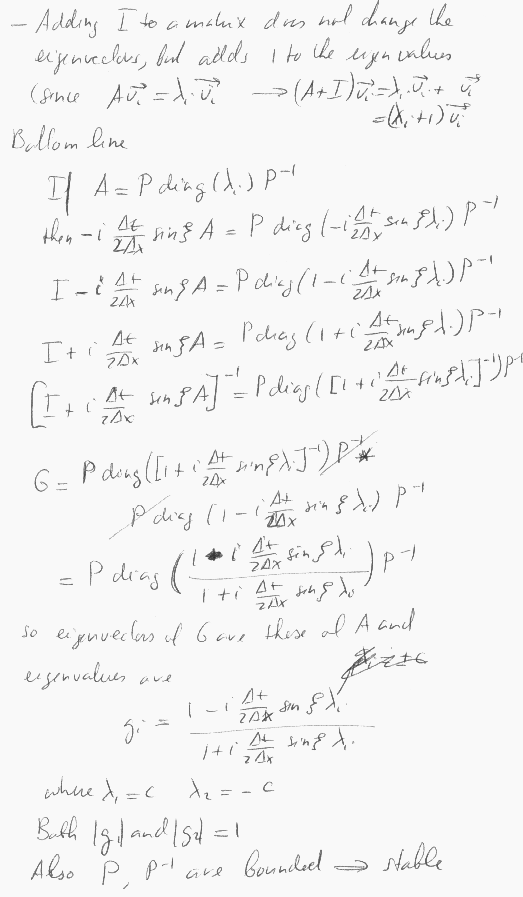 - Adding I to a matrix does not change the
eigenvectors, but adds 1 to the eigenvalues
(since A\vec{v}_i = λ_i \vec{v}_i → (A+I)\vec{v}_i = λ_i \vec{v}_i + \vec{v}_i
= (λ_i + 1) \vec{v}_i
Bottom line
If A = P diag(λ_i) P^{-1}
then -i \frac{Δt}{2Δx} sin ξ A = P diag(-i \frac{Δt}{2Δx} sin ξ λ_i) P^{-1}
I - i \frac{Δt}{2Δx} sin ξ A = P diag(1 - i \frac{Δt}{2Δx} sin ξ λ_i) P^{-1}
I + i \frac{Δt}{2Δx} sin ξ A = P diag(1 + i \frac{Δt}{2Δx} sin ξ λ_i) P^{-1}
[I + i \frac{Δt}{2Δx} sin ξ A]^{-1} = P diag([1 + i \frac{Δt}{2Δx} sin ξ λ_i]^{-1}) P^{-1}
G = P diag([1 + i \frac{Δt}{2Δx} sin ξ λ_i]^{-1}) P^{-1}
P diag(1 - i \frac{Δt}{2Δx} sin ξ λ_i) P^{-1}
= P diag(\frac{1 - i \frac{Δt}{2Δx} sin ξ λ_i}{1 + i \frac{Δt}{2Δx} sin ξ λ_i}) P^{-1}
so eigenvectors of G are those of A and
eigenvalues are
g_i = \frac{1 - i \frac{Δt}{2Δx} sin ξ λ_i}{1 + i \frac{Δt}{2Δx} sin ξ λ_i}
where λ_1 = c λ_2 = -c
Both |g_1| and |g_2| = 1
Also P, P^{-1} are bounded ⇒ stable